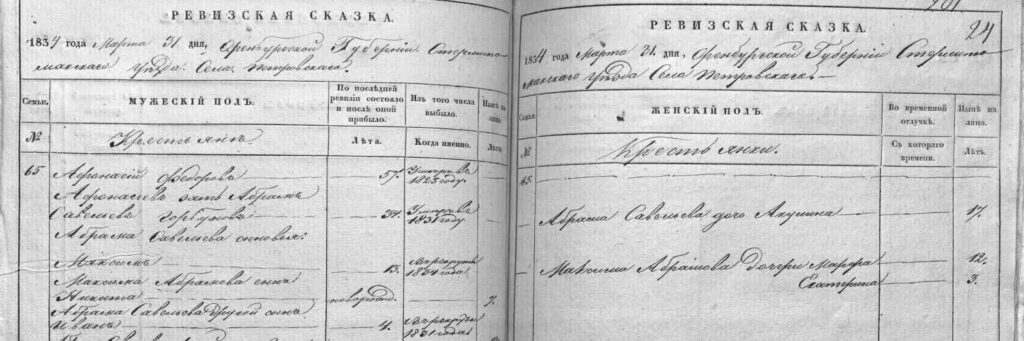 РЕВИЗСКАЯ СКАЗКА.
1834 года Марта 31 дня, Оренбургской Губернiи Стерлита-
макскаго Уѣзда Села Петровскаго.
Семьи.
МУЖЕСКIЙ ПОЛЪ.
По последней ревизiи состояло и послѣ оной прибыло.
Изъ того числа выбыло.
Нынѣ на лицо.
№
Крестьянъ.
Лѣта.
Когда именно.
Лѣта.
65
Афонасiй Федоровъ 57. Умеръ въ 1825 году
Афонасьевъ зять Абрамъ
Савельевъ Горбуновъ 34. Умеръ въ 1831 году
Абрама Савельева сыновья:
Максимъ 13. В рекруты 1834 года
Максима Абрамова сынъ
Никита новорожд. 7.
Абрама Савельева другой сынъ
Иванъ 4. В рекруты 1831 года
24
РЕВИЗСКАЯ СКАЗКА.
1834 года Марта 31 дня, Оренбургской Губернiи Стерлита-
макскаго Уѣзда Села Петровскаго
Семьи.
ЖЕНСКIЙ ПОЛЪ.
Во временной отлучкѣ.
Нынѣ на лицо.
№
Крестьянки.
Съ котораго времени.
Лѣтъ.
65.
Абрама Савельева дочь Акулина 17.
Максима Абрамова дочери Марфа 12.
Екатерина 3.